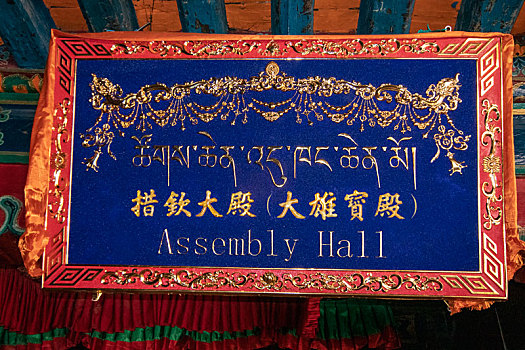 ཚོགས་ཆེན་འདུ་ཁང་ཆེན་མོ།
措欽大殿（大雄寳殿）
Assembly Hall